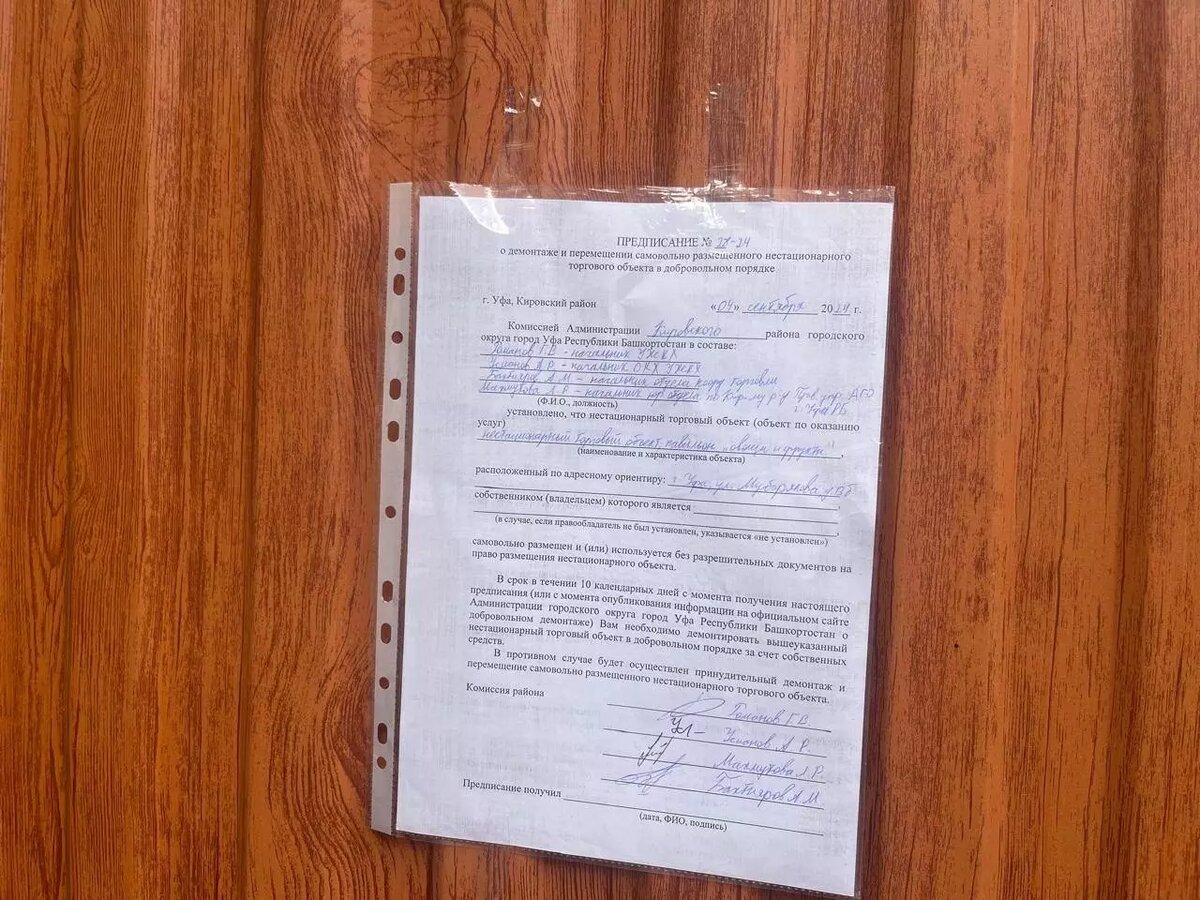 ПРЕДПИСАНИЕ № 27-24
о демонтаже и перемещении самовольно размещенного нестационарного
торгового объекта в добровольном порядке
г. Уфа, Кировский район «04» сентября 2024 г.
Комиссией Администрации Кировского района городского
округа город Уфа Республики Башкортостан в составе:
Романов Г.В - начальник УЖКХ
Усманов А.Р. - начальник ОКХ УЖКХ
Бахтияров А.М - начальник отдела коорд торговли
Махмутова Л.Р - начальник юр отдела по Кир-му р-у Прав. упр. АГО
г. Уфа РБ
(Ф.И.О., должность)
установлено, что нестационарный торговый объект (объект по оказанию
услуг)
нестационарный торговый объект павильон "овощи и фрукты",
(наименование и характеристика объекта)
расположенный по адресному ориентиру: г Уфа, ул.
собственником (владельцем) которого является
(в случае, если правообладатель не был установлен, указывается «не установлен»)
самовольно размещен и (или) используется без разрешительных документов на
право размещения нестационарного объекта.
В срок в течении 10 календарных дней с момента получения настоящего
предписания (или с момента опубликования информации на официальном сайте
Администрации городского округа город Уфа Республики Башкортостан о
добровольном демонтаже) Вам необходимо демонтировать вышеуказанный
нестационарный торговый объект в добровольном порядке за счет собственных
средств.
В противном случае будет осуществлен принудительный демонтаж и
перемещение самовольно размещенного нестационарного торгового объекта.
Комиссия района
Романов Г.В.
Усманов А.Р.
Махмутова Л.Р.
Бахтияров А.М
Предписание получил
(дата, ФИО, подпись)